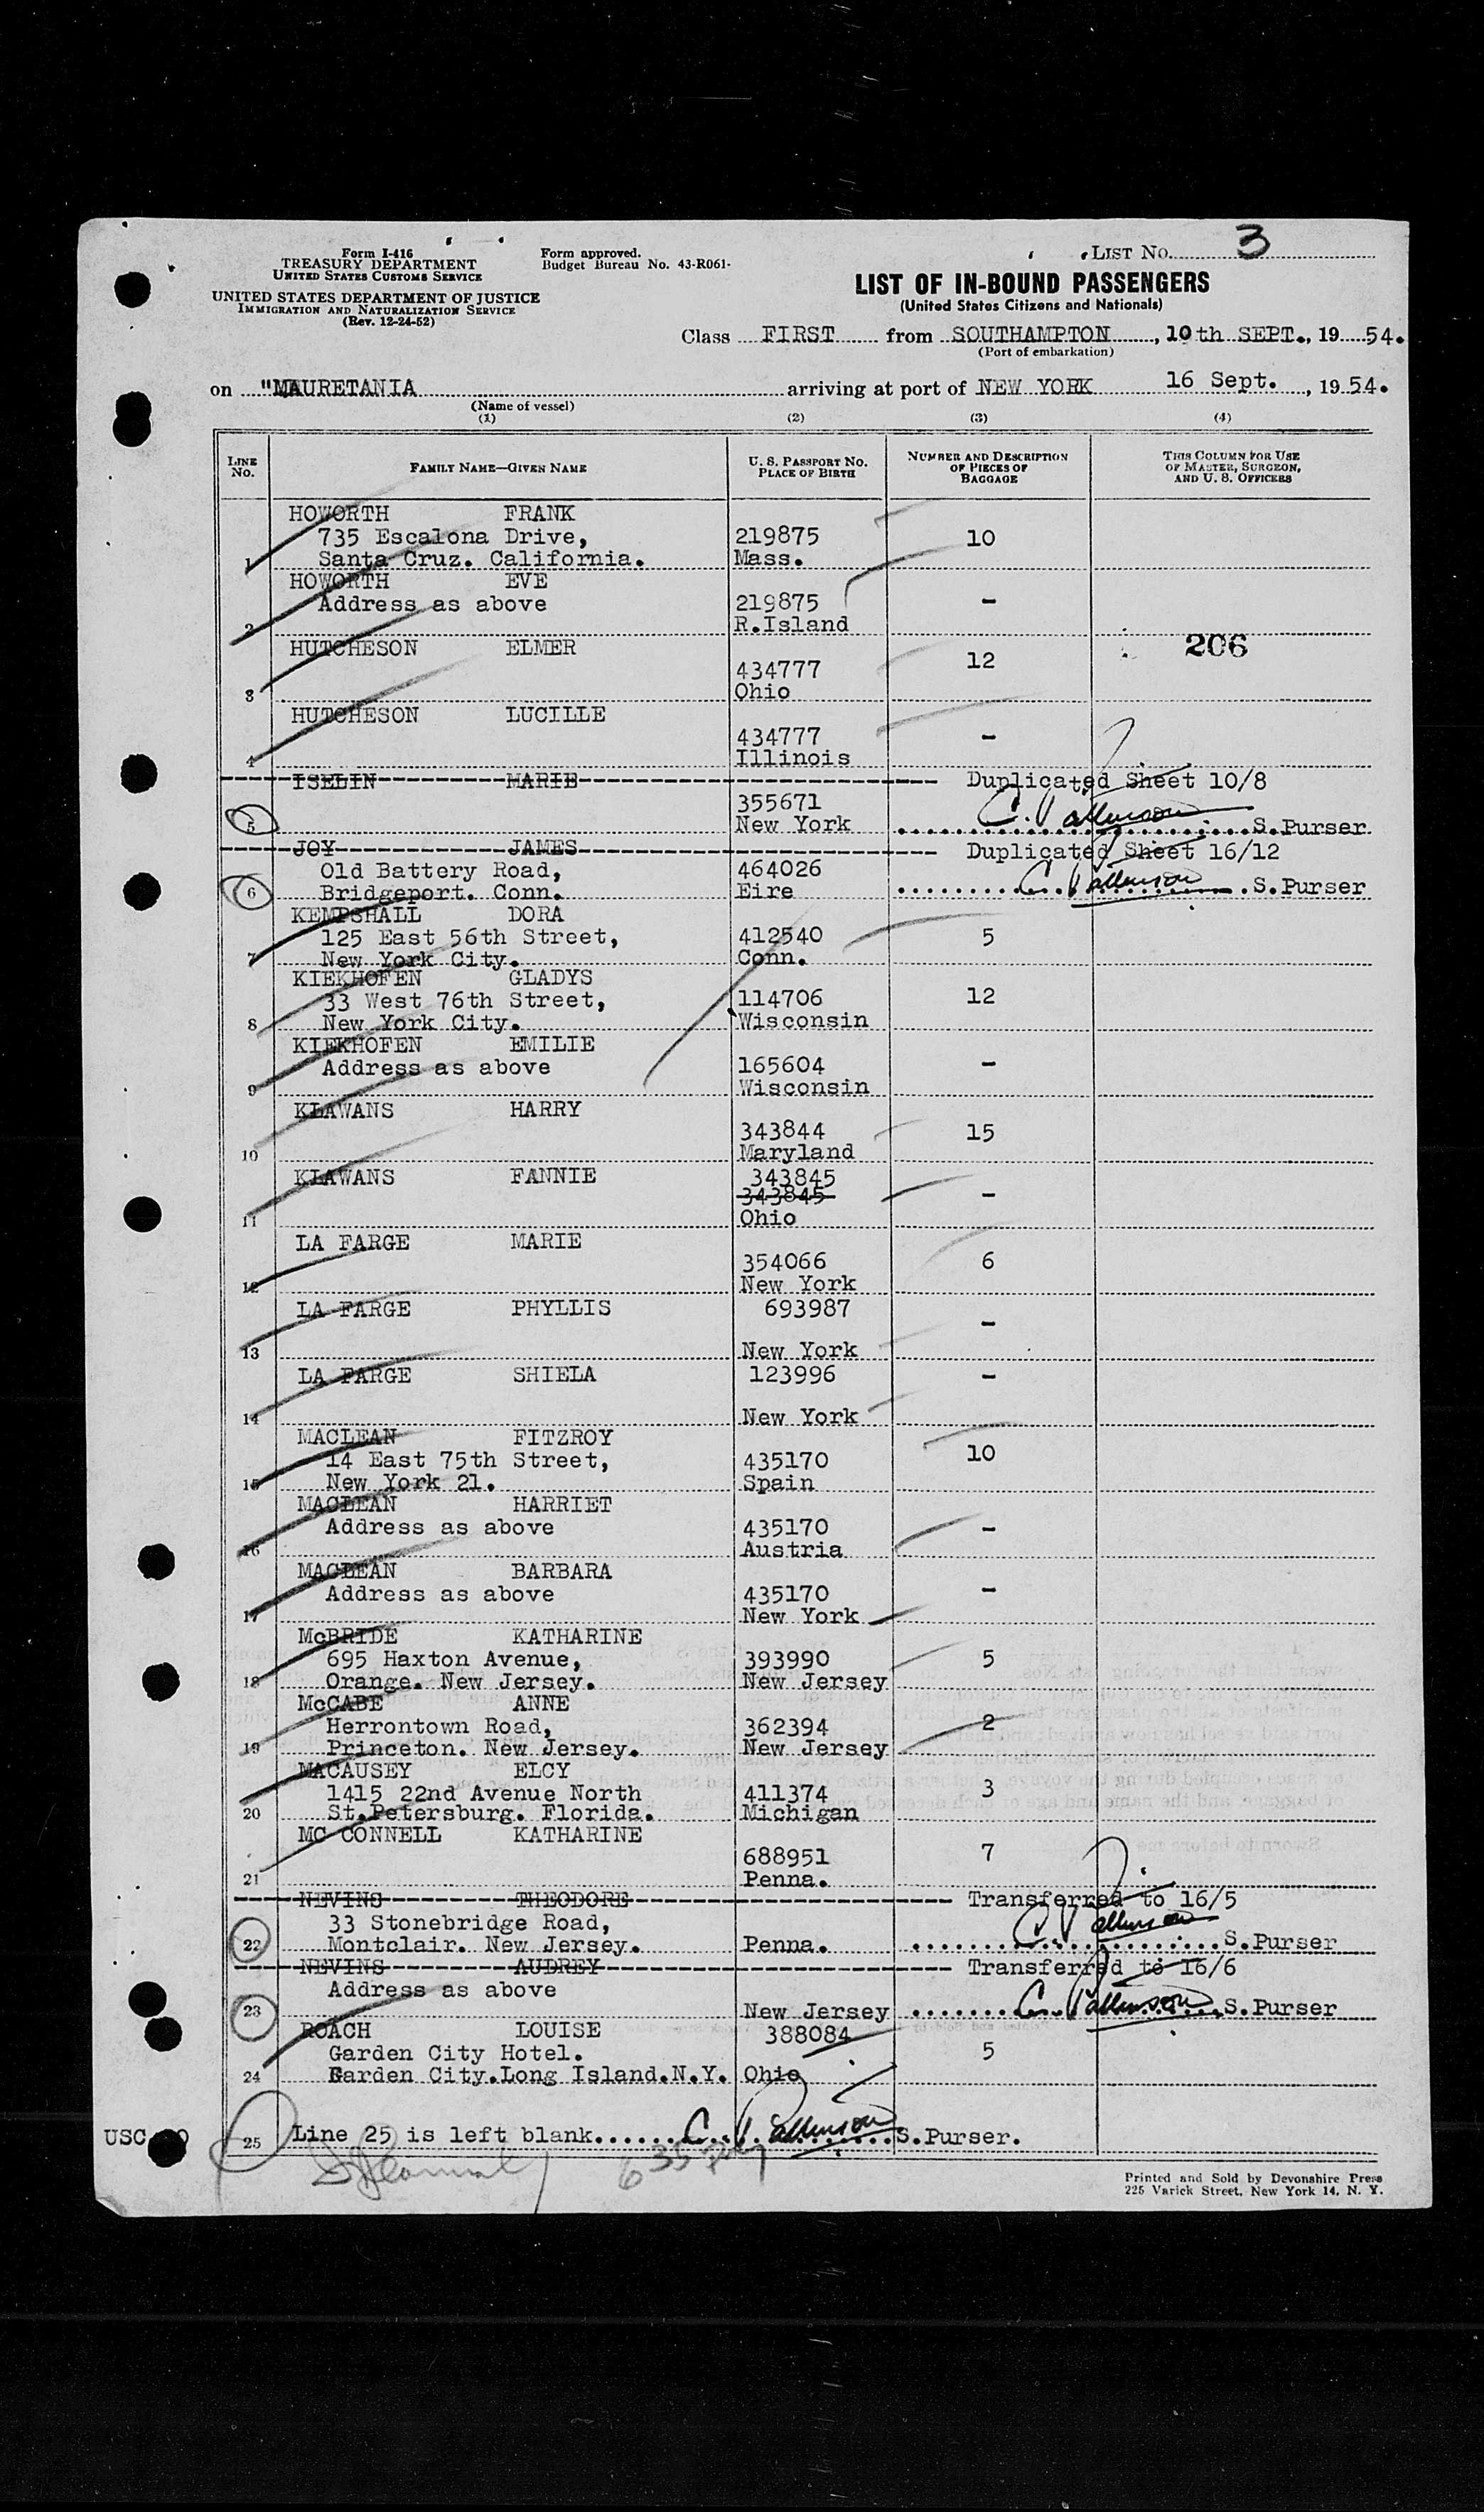 Form I-416
TREASURY DEPARTMENT
UNITED STATES CUSTOMS SERVICE
UNITED STATES DEPARTMENT OF JUSTICE
IMMIGRATION AND NATURALIZATION SERVICE
(Rev. 12-24-52)
Form approved.
Budget Bureau No. 43-R061-
LIST No. 3
LIST OF IN-BOUND PASSENGERS
(United States Citizens and Nationals)
Class FIRST from SOUTHAMPTON, 10th SEPT., 1954.
(Port of embarkation)
on "MAURETANIA arriving at port of NEW YORK 16 Sept., 1954.
(Name of vessel)
(1) (2) (3) (4)
LINE No. FAMILY NAME—GIVEN NAME U. S. PASSPORT NO. PLACE OF BIRTH NUMBER AND DESCRIPTION OF PIECES OF BAGGAGE THIS COLUMN FOR USE OF MASTER, SURGEON, AND U. S. OFFICERS
HOWORTH FRANK
735 Escalona Drive, 219875 10
1 Santa Cruz. California. Mass.
HOWORTH EVE
Address as above 219875 -
2 R.Island
HUTCHESON ELMER 206
434777 12
3 Ohio
HUTCHESON LUCILLE
434777 -
4 Illinois
ISELIN MARIE Duplicated Sheet 10/8
355671
5 New York S.Purser
JOY JAMES Duplicated Sheet 16/12
Old Battery Road, 464026
6 Bridgeport. Conn. Eire S.Purser
KEMPSHALL DORA
125 East 56th Street, 412540 5
7 New York City. Conn.
KIEKHOFEN GLADYS
33 West 76th Street, 114706 12
8 New York City. Wisconsin
KIEKHOFEN EMILIE
Address as above 165604 -
9 Wisconsin
KLAWANS HARRY
343844 15
10 Maryland
KLAWANS FANNIE 343845
343845 -
11 Ohio
LA FARGE MARIE
354066 6
12 New York
LA FARGE PHYLLIS 693987
-
13 New York
LA FARGE SHIELA 123996 -
14 New York
MACLEAN FITZROY
14 East 75th Street, 435170 10
15 New York 21. Spain
MACLEAN HARRIET
Address as above 435170 -
16 Austria
MACLEAN BARBARA
Address as above 435170 -
17 New York
McBRIDE KATHARINE
695 Haxton Avenue, 393990 5
18 Orange. New Jersey. New Jersey
McCABE ANNE
Herrontown Road, 362394 2
19 Princeton. New Jersey. New Jersey
MACAUSEY ELCY
1415 22nd Avenue North 411374 3
20 St.Petersburg. Florida. Michigan
MC CONNELL KATHARINE
688951 7
21 Penna.
NEVINS THEODORE Transferred to 16/5
33 Stonebridge Road,
22 Montclair. New Jersey. Penna. S.Purser
NEVINS AUDREY Transferred to 16/6
Address as above
23 New Jersey S.Purser
ROACH LOUISE 388084
Garden City Hotel. 5
24 Garden City.Long Island.N.Y. Ohio
USC
25 Line 25 is left blank. S.Purser.
Printed and Sold by Devonshire Press
225 Varick Street, New York 14, N. Y.